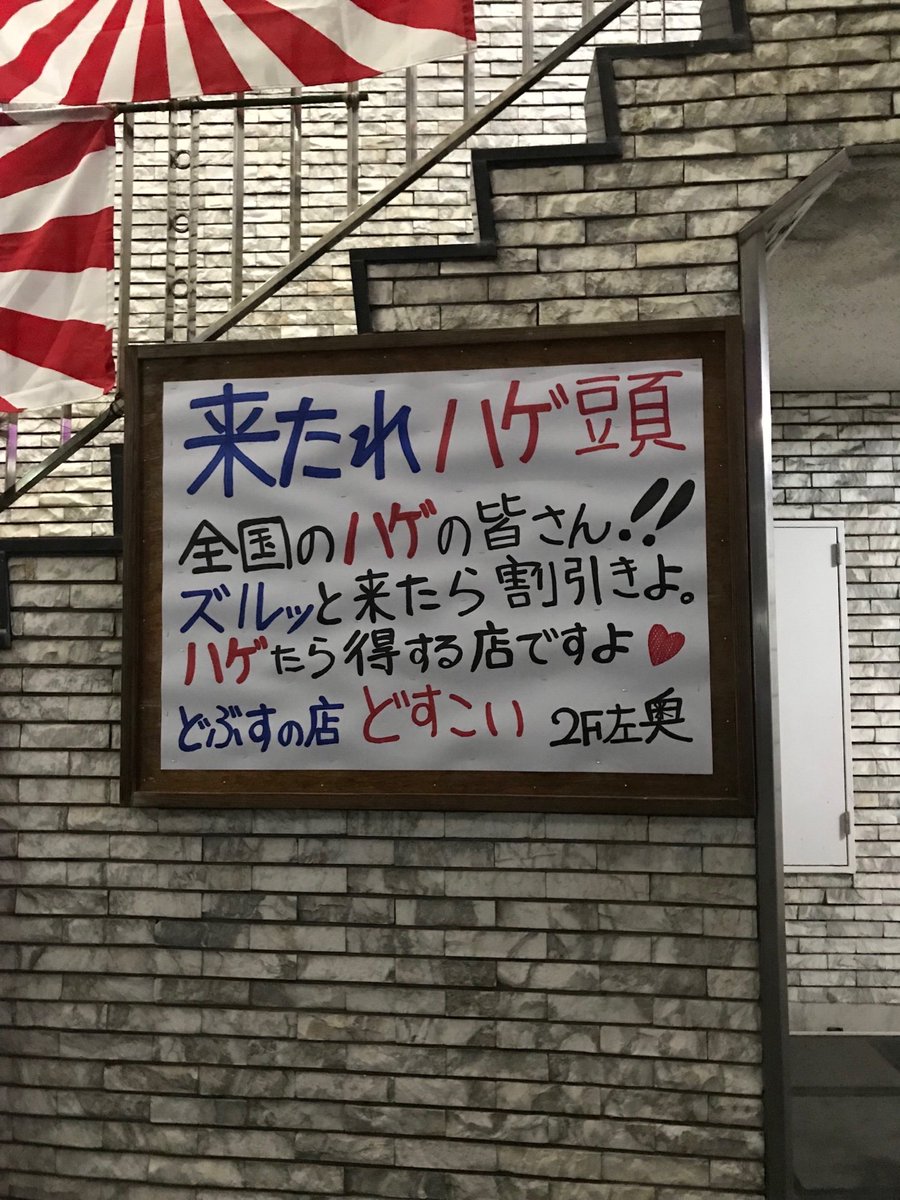 来たれハゲ頭
全国のハゲの皆さん!!
ズルッと来たら割引きよ。
ハゲたら得する店ですよ♥
どぶすの店 どすこい 2F左奥